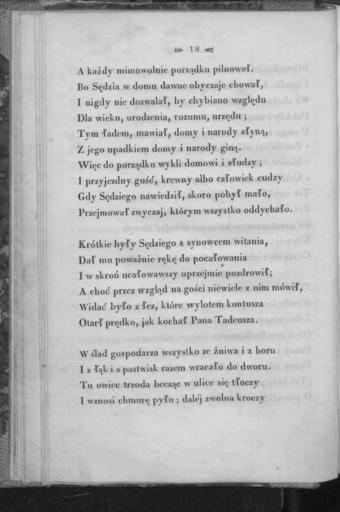 18
A każdy mimowolnie porządku pilnował.
Bo Sędzia w domu dawne obyczaje chował,
I nigdy nie dozwalał, by chybiano względu
Dla wieku, urodzenia, rozumu, urzędu ;
Tym ładem, mawiał, domy i narody słyną,
Z jego upadkiem domy i narody giną.
Więc do porządku wykli domowi i słudzy ;
I przyjezdny gość, krewny albo człowiek cudzy
Gdy Sędziego nawiedził, skoro pobył mało,
Przejmował zwyczaj, którym wszystko oddychało.
Krótkie były Sędziego s synowcem witania,
Dał mu poważnie rękę do pocałowania
I w skroń ucałowawszy uprzejmie pozdrowił;
A choć przez wzgląd na gości niewiele z nim mówił,
Widać było z łez, które wylotem kontusza
Otarł prędko, jak kochał Pana Tadeusza.
W ślad gospodarza wszystko ze żniwa i z boru
I z łąk i s pastwisk razem wracało do dworu.
Tu owiec trzoda becząc w ulice się tłoczy
I wznosi chmurę pyłu ; daléj zwolna kroczy